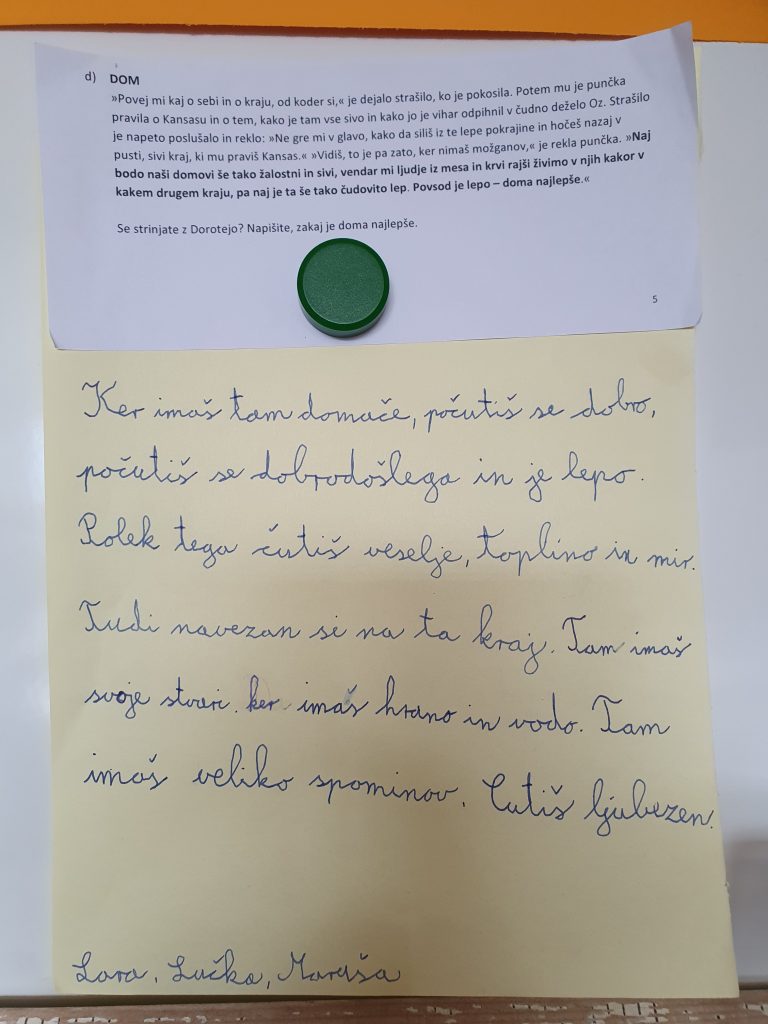 d) DOM
»Povej mi kaj o sebi in o kraju, od koder si,« je dejalo strašilo, ko je pokosila. Potem mu je punčka
pravila o Kansasu in o tem, kako je tam vse sivo in kako jo je vihar odpihnil v čudno deželo Oz. Strašilo
je napeto poslušalo in reklo: »Ne gre mi v glavo, kako da siliš iz te lepe pokrajine in hočeš nazaj v
pusti, sivi kraj, ki mu praviš Kansas.« »Vidiš, to je pa zato, ker nimaš možganov,« je rekla punčka. »Naj
bodo naši domovi še tako žalostni in sivi, vendar mi ljudje iz mesa in krvi rajši živimo v njih kakor v
kakem drugem kraju, pa naj je ta še tako čudovito lep. Povsod je lepo – doma najlepše.«
Se strinjate z Dorotejo? Napišite, zakaj je doma najlepše.
5
Ker imaš tam domače, počutiš se dobro,
počutiš se dobrodošlega in je lepo.
Polek tega čutiš veselje, toplino in mir.
Tudi navezan si na ta kraj. Tam imaš
svoje stvari. ker imaš hrano in vodo. Tam
imaš veliko spominov. Čutiš ljubezen.
Lara, Lučka, Maruša